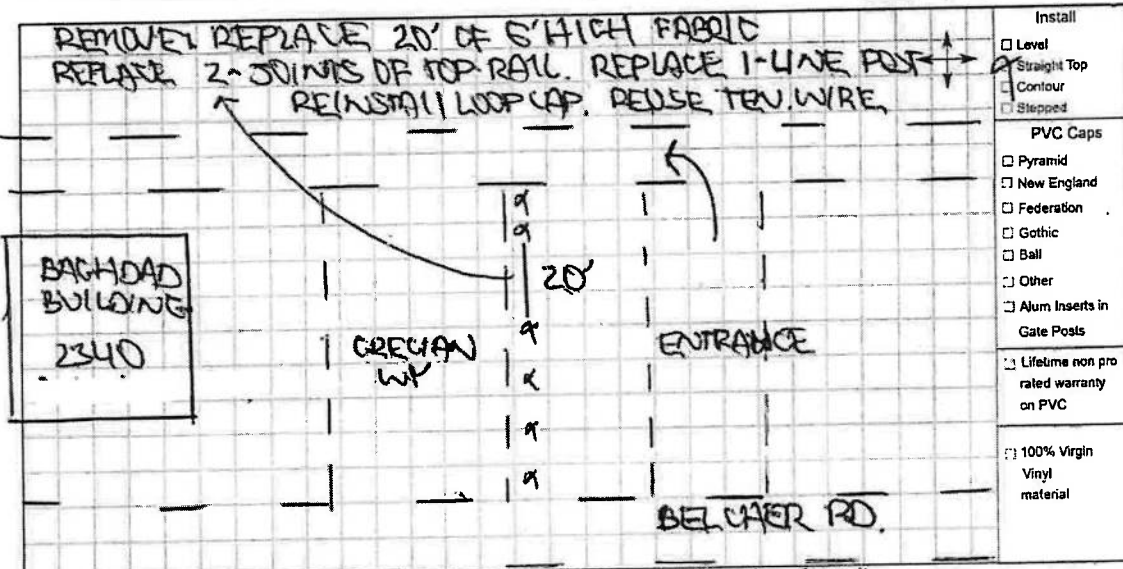 REMOVE & REPLACE 20' OF 6' HIGH FABRIC
REPLACE 2-JOINTS OF TOP RAIL. REPLACE 1-LINE POST
REINSTALL LOOP CAP. REUSE TEN. WIRE
BAGHDAD
BUILDING
2340
GRECIAN
WY
20'
ENTRANCE
BELCHER RD.
Install
Level
Straight Top
Contour
Stepped
PVC Caps
Pyramid
New England
Federation
Gothic
Ball
Other
Alum Inserts in
Gate Posts
Lifetime non pro
rated warranty
on PVC
100% Virgin
Vinyl
material